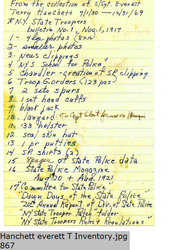 From the collection of S/Sgt. Everett
Terry Hanchett 9/1/30 – 1/31/69
N.Y. State Troopers
Bulletin No. 1, Nov. 1, 1917
1- large photos (8x10)
2- smaller photos
3 News clippings
4 U.S. School for Police
5 Chandler - creation of SP clipping
6 Troop Guardes (123 pcs)
7 2 sets spurs
8 1 set hand cuffs
9 black jack
10 lanyard To Capt
11 .38 holster
12 seal skin hat
13 1 pr. putties
14 SP shirts (2)
15 pages of State Police data
16 State Police Magazine
Aug 1920 & Aug. 1921
17 Committee for State Police
"Down Days of the State Police"
Annual Report of Div. of State Police
NY State Trooper Patch Folder
NY State Troopers Rules & Regulations"
Hanchett everett T Inventory.jpg
867